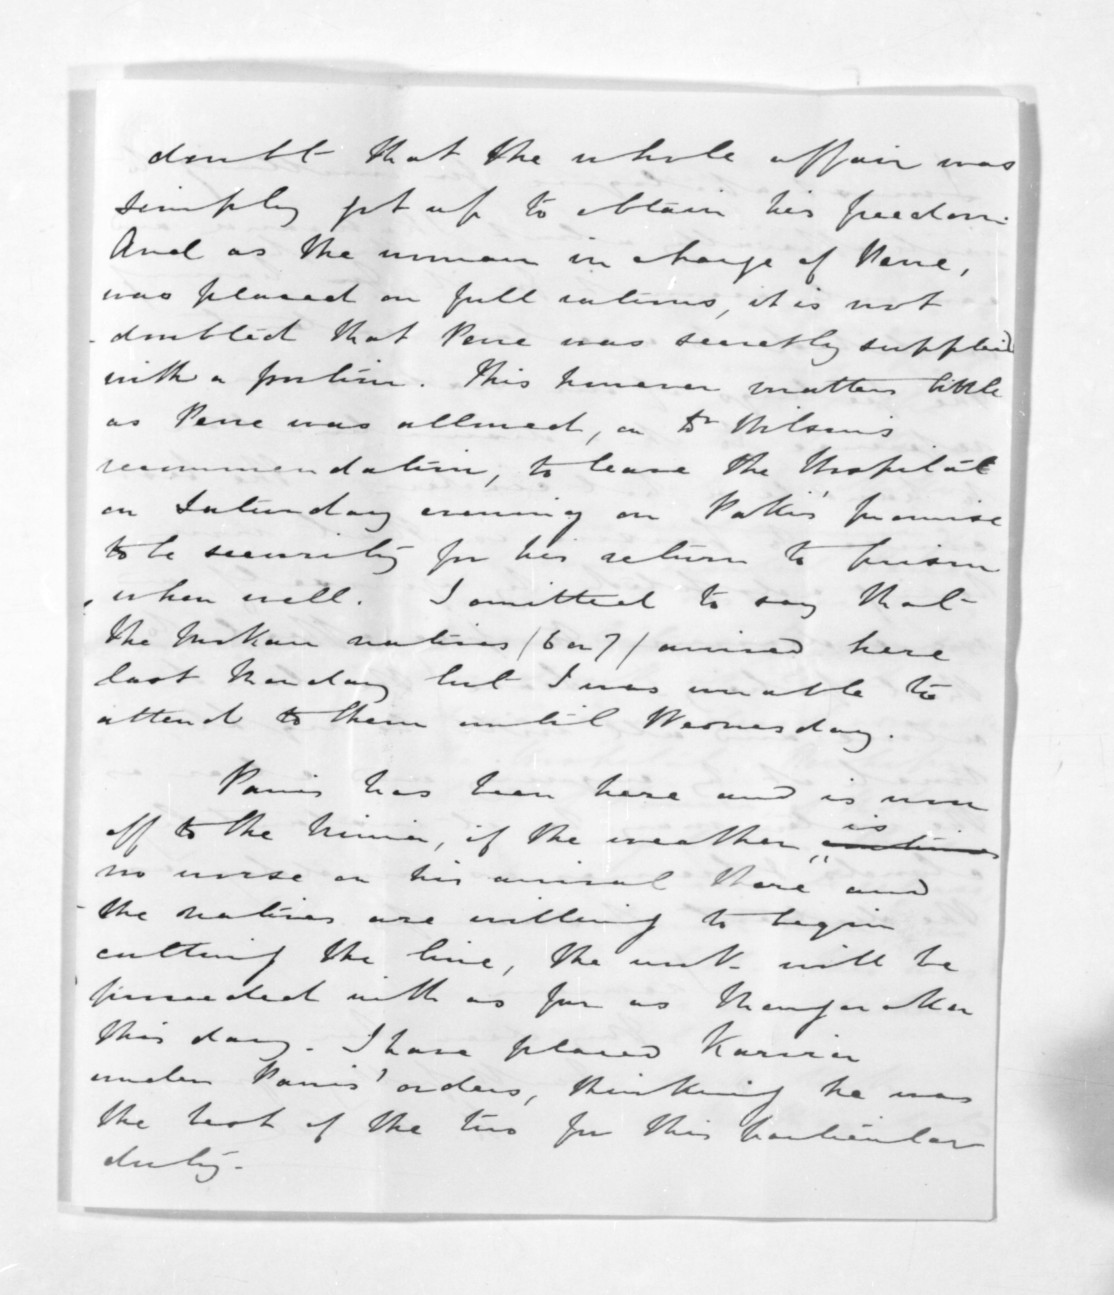 doubt that the whole affair was
simply got up to obtain his freedom.
And as the woman in charge of Pene,
was placed on full rations, it is not
doubted that Pene was secretly supplied
with a portion. This however matters little
as Pene was allowed, on Dr Wilson's
recommendation, to leave the Hospital
on Saturday evening on Patki's promise
to be security for his return to prison
when well. I omitted to say that
the Mokau natives (6 or 7) arrived here
last Monday but I was unable to
attend to them until Wednesday.
Parris has been here and is now
off to the Nimia, if the weather is
no worse on his arrival there and
the natives are willing to begin
cutting the line, the work will be
proceeded with as far as
this day. I have placed
under Parris' orders, thinking he was
the best of the two for this particular
duty.